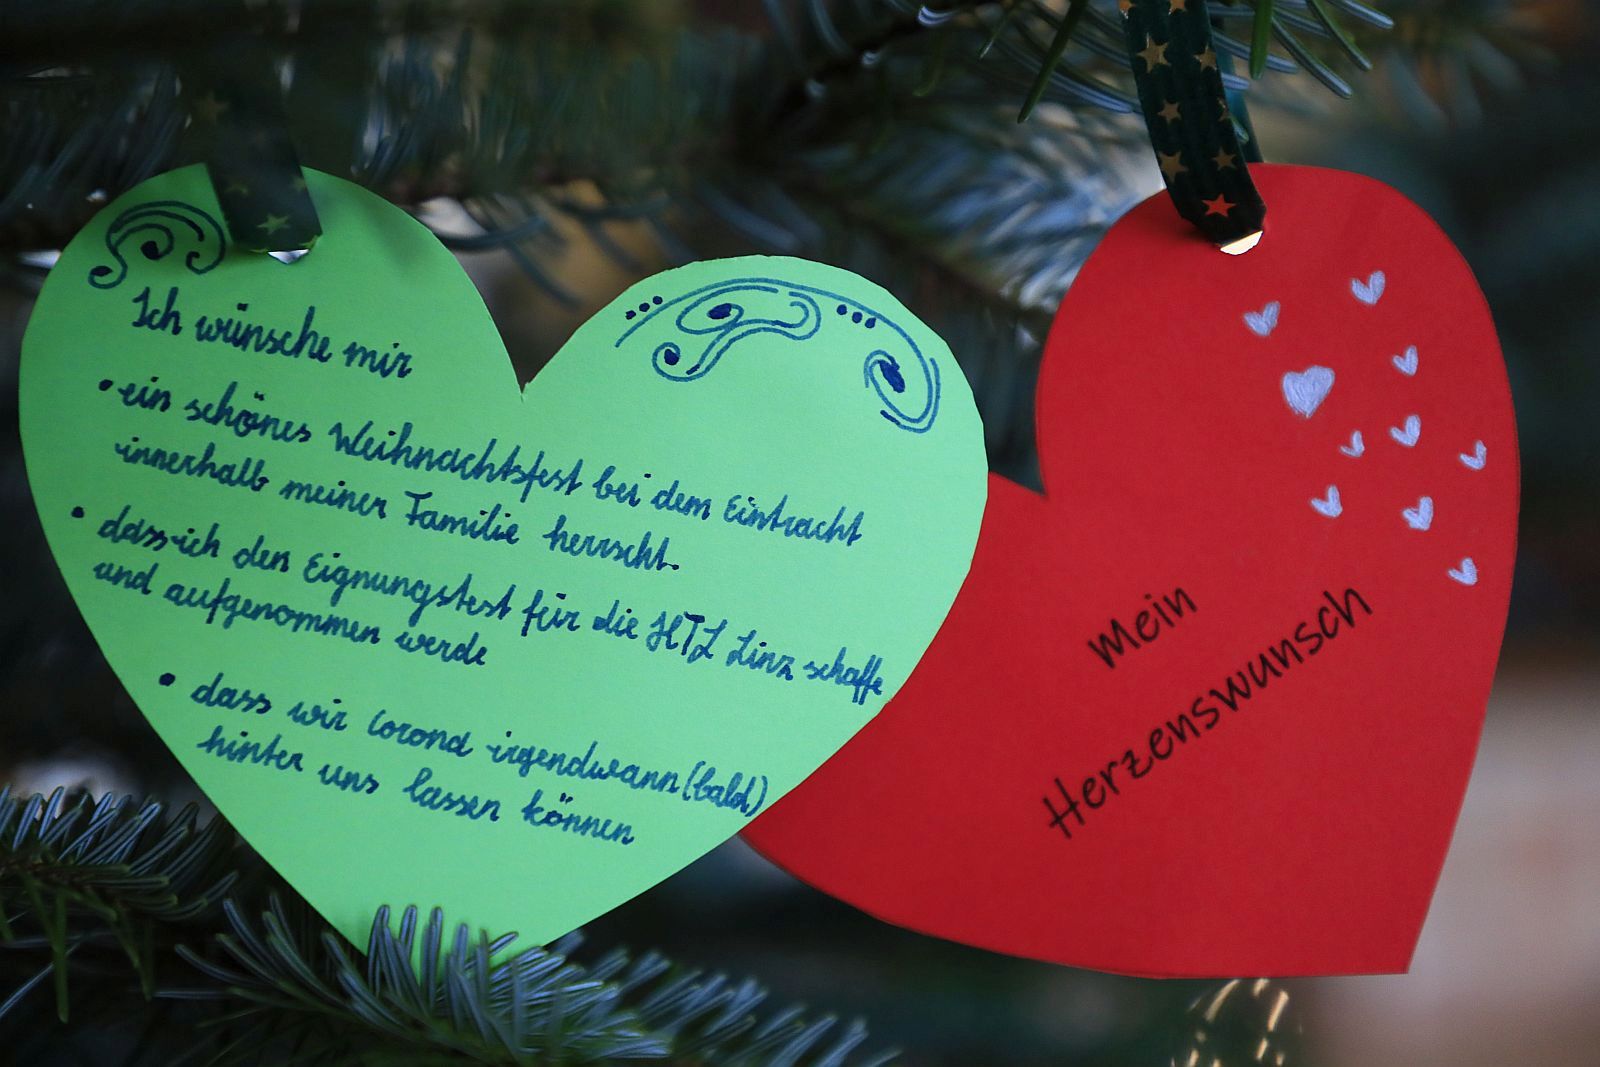 Ich wünsche mir
• ein schönes Weihnachtsfest bei dem Eintracht
innerhalb meiner Familie herrscht.
• dass ich den Eignungstest für die HTL Linz schaffe
und aufgenommen werde
• dass wir Corona irgendwann (bald)
hinter uns lassen können
Mein
Herzenswunsch